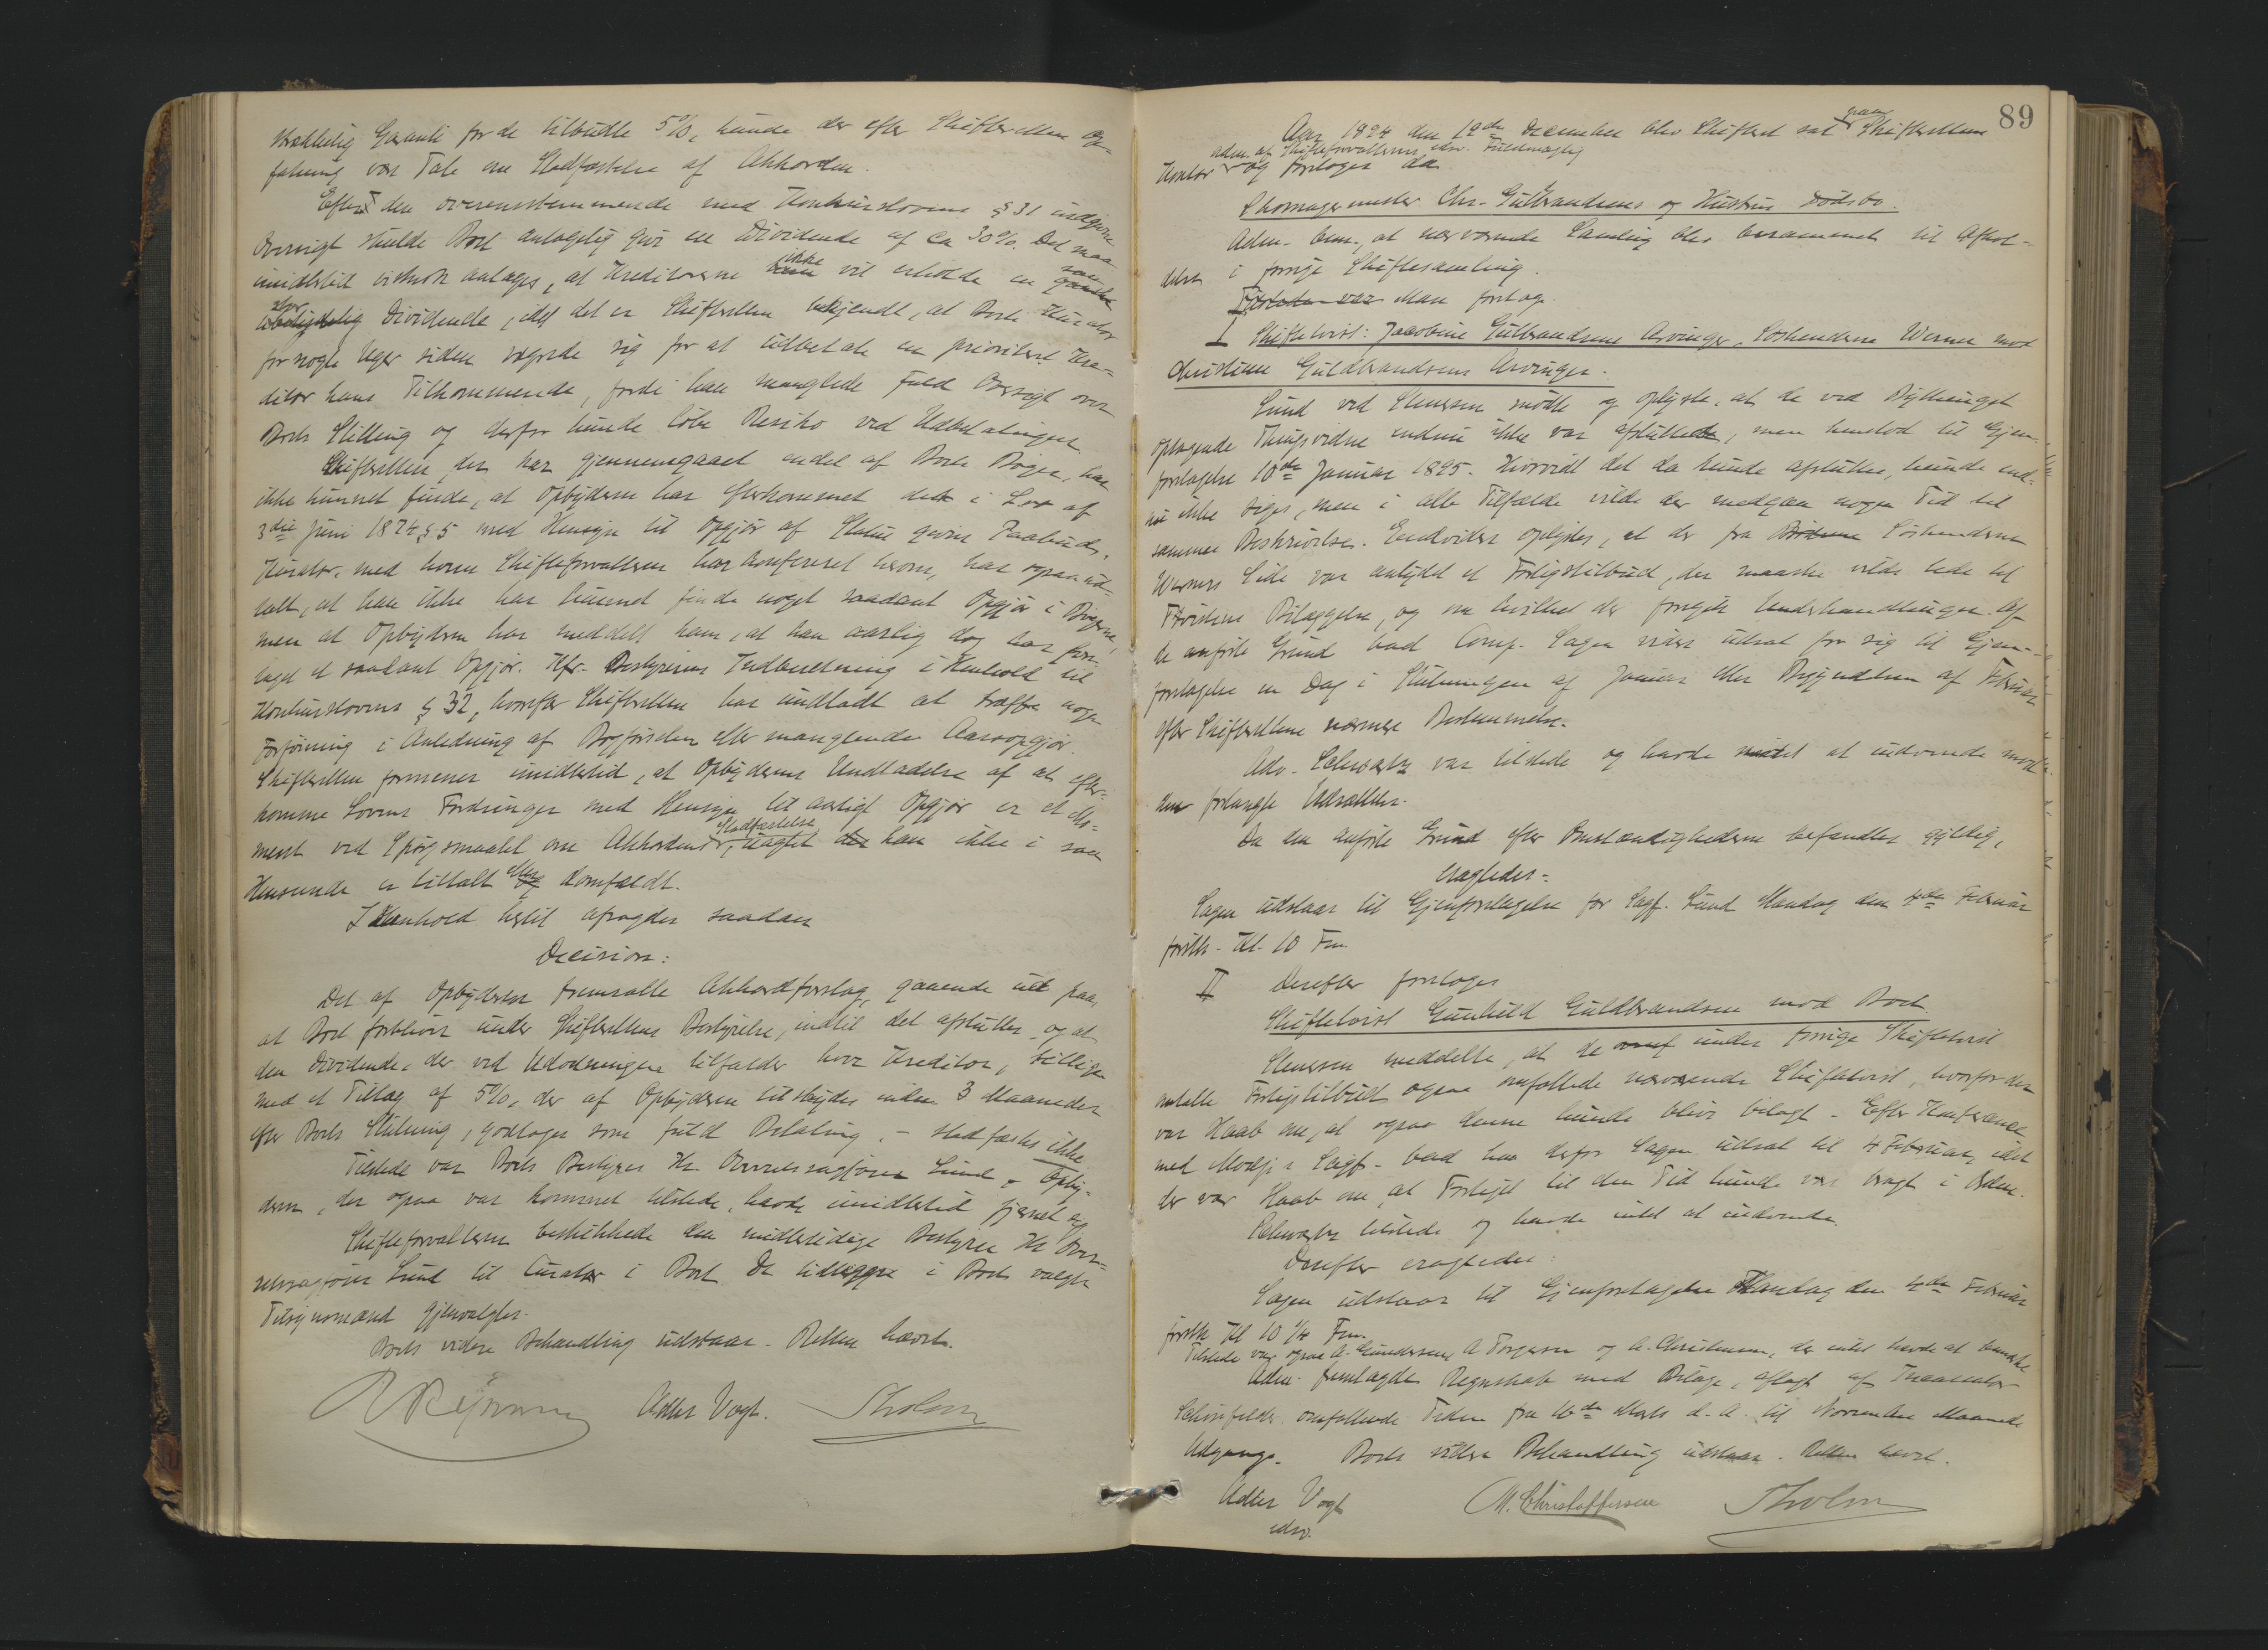 strækkelig Garanti for de tilbudte 5%, kunde der efter Skifterettens Op-
fatning være Tale om Stadfæstelse af Akkorden.
Efter den overensstemmende med Konkurslovens § 31 indgivne
Oversigt skulde Boet antagelig give en Dividende af ca 30%. Det maa
imidlertid vistnok antages, at Kreditorerne ikke vil erholde en saa
stor Dividende, idet det er Skifteretten bekjendt, at Boets Kurator
for nogle Uger siden vægrede sig for at udbetale en prioriteret Kre-
ditor hans Tilkommende, fordi han manglede fuld Oversigt over
Boets Stilling og derfor kunde løbe Risiko ved Udbetalingen.
Skifteretten, der har gjennemgaaet endel af Boets Bøger, har
ikke kunnet finde, at Opbyderen har efterkommet det i Lov af
3die Juni 1874 § 5 med Hensyn til Opgjør af Status givne Paabud.
Kurator, med hvem Skifteforvalteren har konfereret herom, har ogsaa ud-
talt, at han ikke har kunnet finde noget saadant Opgjør i Bøgerne,
men at Opbyderen har meddelt ham, at han aarlig dog har fore-
taget et saadant Opgjør. Kfr. Bestyrerens Indberetning i Henhold til
Konkurslovens § 32, hvorefter Skifteretten har undladt at træffe nogen
Forføining i Anledning af Bogførselen eller manglende Aarsopgjør.
Skifteretten formener imidlertid, at Opbyderens Undladelse af at efter-
komme Lovens Fordringer med Hensyn til aarligt Opgjør er et Mo-
ment ved Spørgsmaalet om Akkordens Stadfæstelse, uagtet han ikke i saa
Henseende er tiltalt eller domfældt.
I Henhold hertil afsagdes saadan
Decision:
Det af Opbyderen fremsatte Akkordforslag, gaaende ud paa,
at Boet forbliver under Skifterettens Bestyrelse, indtil det afsluttes og at
den Dividende, der ved Udlodningen tilfalder hver Kreditor, tilligemed
med et Tillæg af 5%, der af Opbyderen tilskydes inden 3 Maaneder
efter Boets Slutning, godtages som fuld Betaling, – stadfæstes ikke.
Tilstede var Boets Bestyrer Hr. Overretssagfører Lund. Opby-
deren, der ogsaa var kommet tilstede, havde imidlertid fjernet sig.
Skifteforvalteren beskikkede den midlertidige Bestyrer Hr Over-
retssagfører Lund til Curator i Boet. De tidligere i Boet valgte
Tilsynsmænd gjenvalgtes.
Boets videre Behandling udstaar. Retten hævet.
Adler Vogt. Tholm
89
Aar 1894 den 12te December blev Skifteret sat paa Skifterettens
Kontor adm. af Skifteforvalterens edsv. Fuldmægtig og foretoges da
Skomagermester Chr. Gulbrandsens og Hustrus Dødsbo.
Adm. bem., at nærværende Samling blev berammet til Afhol-
delse i forrige Skiftesamling.
Tilstede var Man foretog
I Skiftetvist: Jacobine Gulbrandsens Arvinger, Søskendene Werner mod
Christian Guldbrandsens Arvinger.
Lund ved Stenersen mødte og oplyste, at de ved Bythinget
optagende Thingsvidne endnu ikke var afsluttede, men henstod til Gjen-
foretagelse 10de Januar 1895. Hvorvidt det da kunde afsluttes, kunde end-
nu ikke siges, men i alle Tilfælde vilde der medgaa nogen Tid til
sammes Beskrivelse. Endvidere oplystes, at der fra Søskendene
Werners Side var antydet et Forligstilbud, der maaske vilde lede til
Tvistens Bilæggelse, og om hvilket der foregik Underhandlinger. Af
de anførte Grund bad Comp. Sagen videre udsat for sig til Gjen-
foretagelse en Dag i Slutningen af Januar eller Begyndelsen af Februar
efter Skifterettens nærmere Bestemmelse.
Adv. Schwartz var tilstede og havde intet at indvende mod
den forlangte Udsættelse.
Da den anførte Grund efter Omstændighederne befandtes gyldig,
eragtedes:
Sagen udstaar til Gjenforetagelse for Sagf. Lund Mandag den 4de Februar
førstk. Kl. 10 Fm.
II Derefter foretoges
Skiftetvist Gunhild Guldbrandsen mod Boet
Stenersen meddelte, at de under forrige Skiftetvist
omtalte Forligstilbud ogsaa omfattede nærværende Skiftetvist, hvorfor der
var Haab om, at ogsaa denne kunde blive bilagt. Efter Konferance
med Modp.s Sagf. bad han derfor Sagen udsat til 4 Februar, idet
der var Haab om, at Forliget til den Tid kunde være bragt i Orden.
Schwartz tilstede og havde intet at indvende.
Derefter eragtedes:
Sagen udstaar til Gjenforetagelse Mandag den 4de Februar
førstk Kl 10 1/4 Fm.
Tilstede var ogsaa A. Gundersen, A Torgersen og A. Christensen, der intet havde at bemærke
Adm. fremlagde Regnskab med Bilage, aflagt af Incassator
Schönfelder omfattende Tiden fra 16de Marts d. A. til November Maaneds
Udgang. Boets videre Behandling udstaar. Retten hævet.
Adler Vogt M. Christoffersen Tholm
edsv.